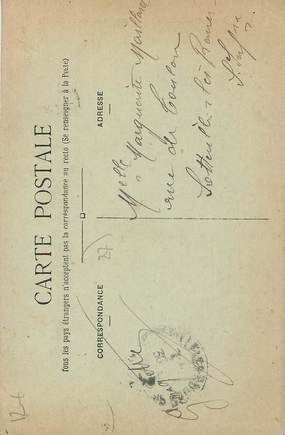 CARTE POSTALE
Tous les pays étrangers n'acceptent pas la correspondance au recto (Se renseigner à la Poste)
CORRESPONDANCE
ADRESSE
Melle Marguerite Maillard
rue de Toulon
Sotteville les Rouen
27